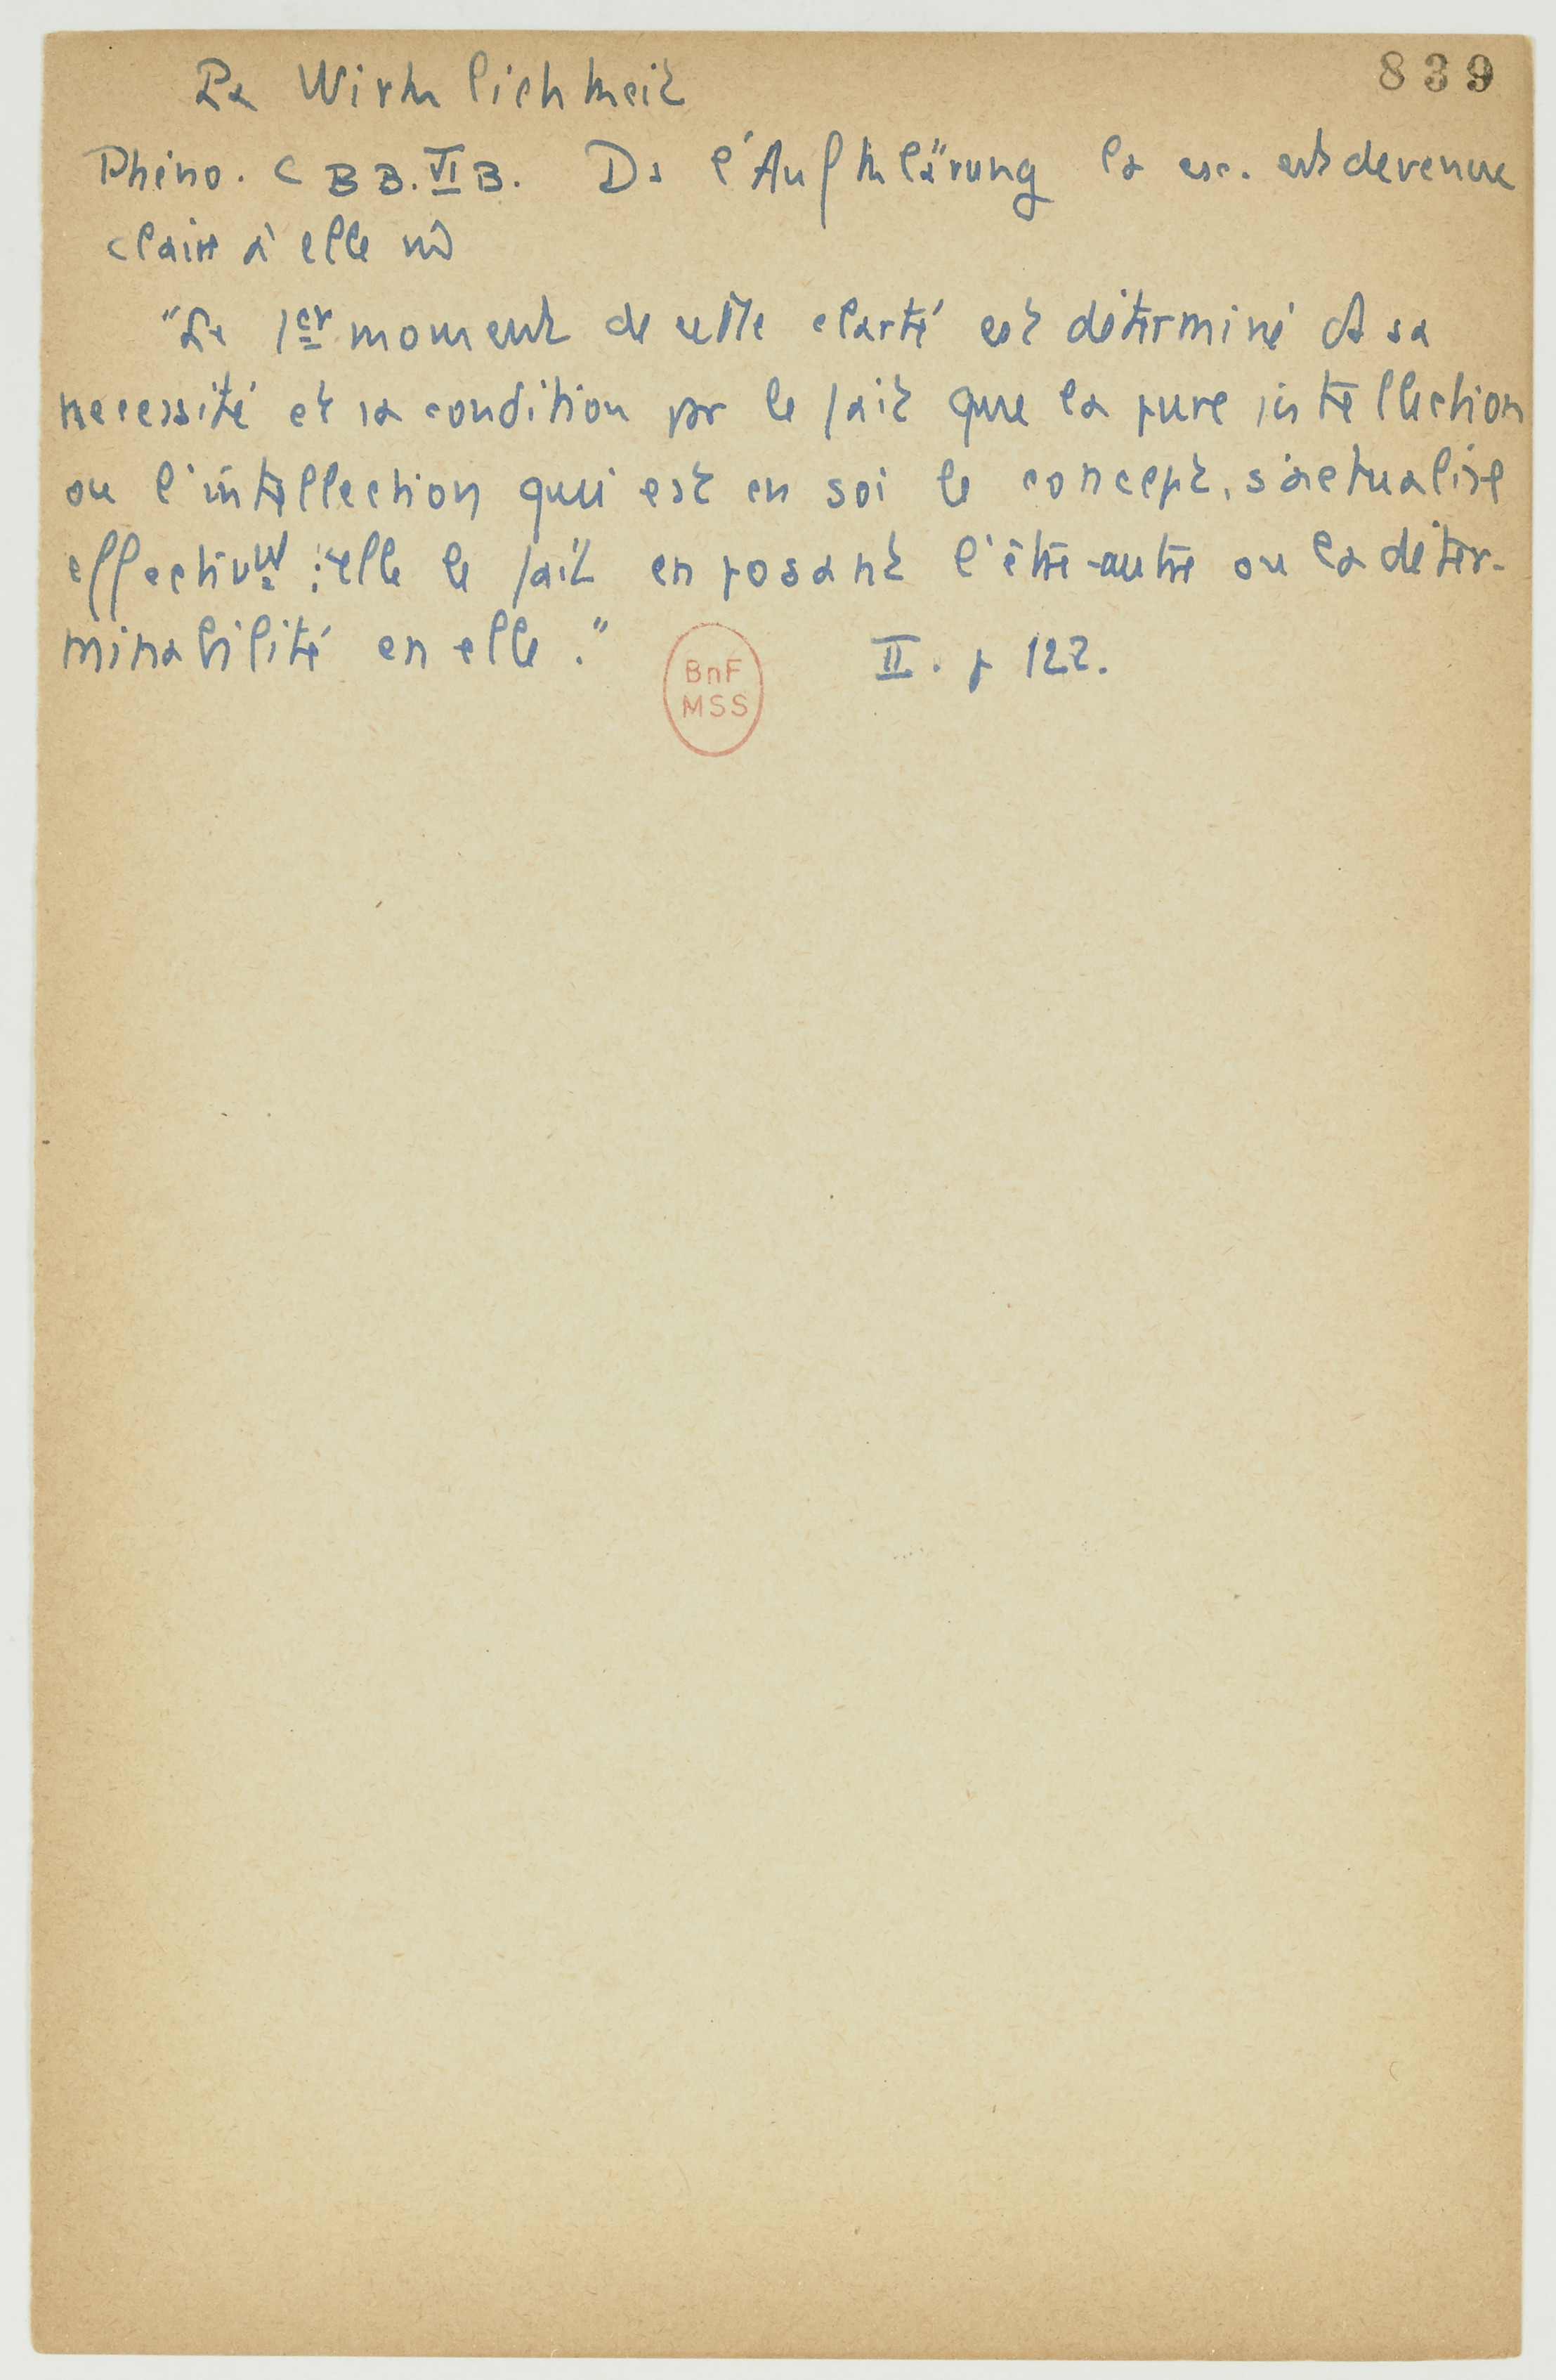 839
La Wirklichkeit
Phéno. C BB. VI B. Ds l'Aufklärung la csc. est devenue
claire à elle m̂
"Le 1er moment de cette clarté est déterminé ds sa
necessité et sa condition par le fait que la pure intellection
ou l'intellection qui est en soi le concept, s'actualise
effectivt : elle le fait en posant l'être-autre ou la déter-
minabilité en elle."
II. p 122.
BnF
MSS